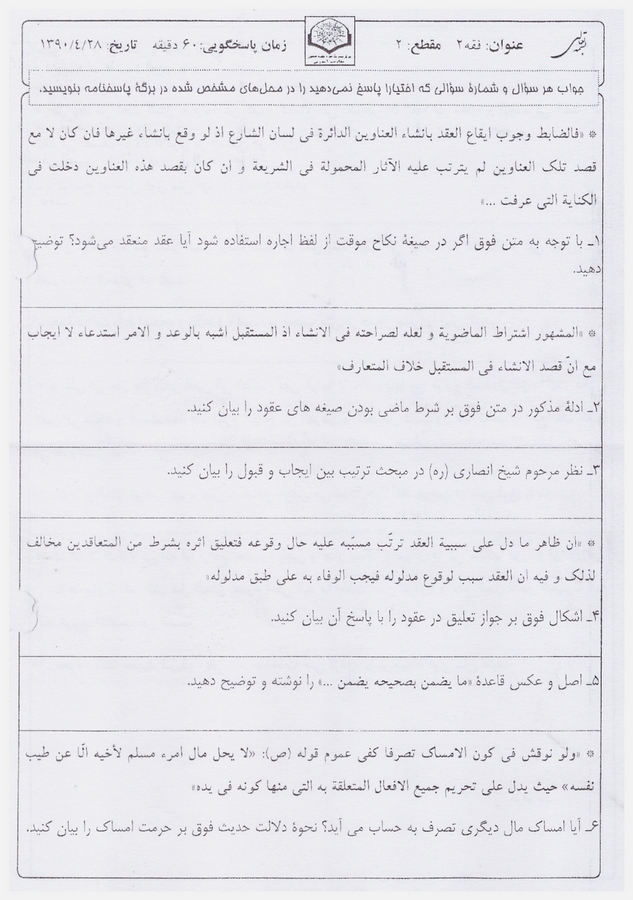 عنوان: فقه ۲ مقطع: ۲ زمان پاسخگویی: ۶۰ دقیقه تاریخ: ۱۳۹۰/۴/۲۸
جواب هر سؤال و شمارهٔ سؤالی که اختیارا پاسخ نمی‌دهید را در محل‌های مشخص شده در برگهٔ پاسخنامه بنویسید.
* «فالضابط وجوب ایقاع العقد بانشاء العناوین الدائرة فی لسان الشارع اذ لو وقع بانشاء غیرها فان کان لا مع
قصد تلک العناوین لم یترتب علیه الآثار المحمولة فی الشریعة و ان کان بقصد هذه العناوین دخلت فی
الکنایة التی عرفت ...»
۱ـ با توجه به متن فوق اگر در صیغهٔ نکاح موقت از لفظ اجاره استفاده شود آیا عقد منعقد می‌شود؟ توضیح
دهید.
* «المشهور اشتراط الماضویة و لعله لصراحته فی الانشاء اذ المستقبل اشبه بالوعد و الامر استدعاء لا ایجاب
مع انّ قصد الانشاء فی المستقبل خلاف المتعارف»
۲ـ ادلهٔ مذکور در متن فوق بر شرط ماضی بودن صیغه های عقود را بیان کنید.
۳ـ نظر مرحوم شیخ انصاری (ره) در مبحث ترتیب بین ایجاب و قبول را بیان کنید.
* «ان ظاهر ما دل علی سببیة العقد ترتّب مسبّبه علیه حال وقوعه فتعلیق اثره بشرط من المتعاقدین مخالف
لذلک و فیه ان العقد سبب لوقوع مدلوله فیجب الوفاء به علی طبق مدلوله»
۴ـ اشکال فوق بر جواز تعلیق در عقود را با پاسخ آن بیان کنید.
۵ـ اصل و عکس قاعدهٔ «ما یضمن بصحیحه یضمن ...» را نوشته و توضیح دهید.
* «ولو نوقش فی کون الامساک تصرفا کفی عموم قوله (ص): «لا یحل مال امرء مسلم لأخیه الّا عن طیب
نفسه» حیث یدل علی تحریم جمیع الافعال المتعلقة به التی منها کونه فی یده»
۶ـ آیا امساک مال دیگری تصرف به حساب می آید؟ نحوهٔ دلالت حدیث فوق بر حرمت امساک را بیان کنید.